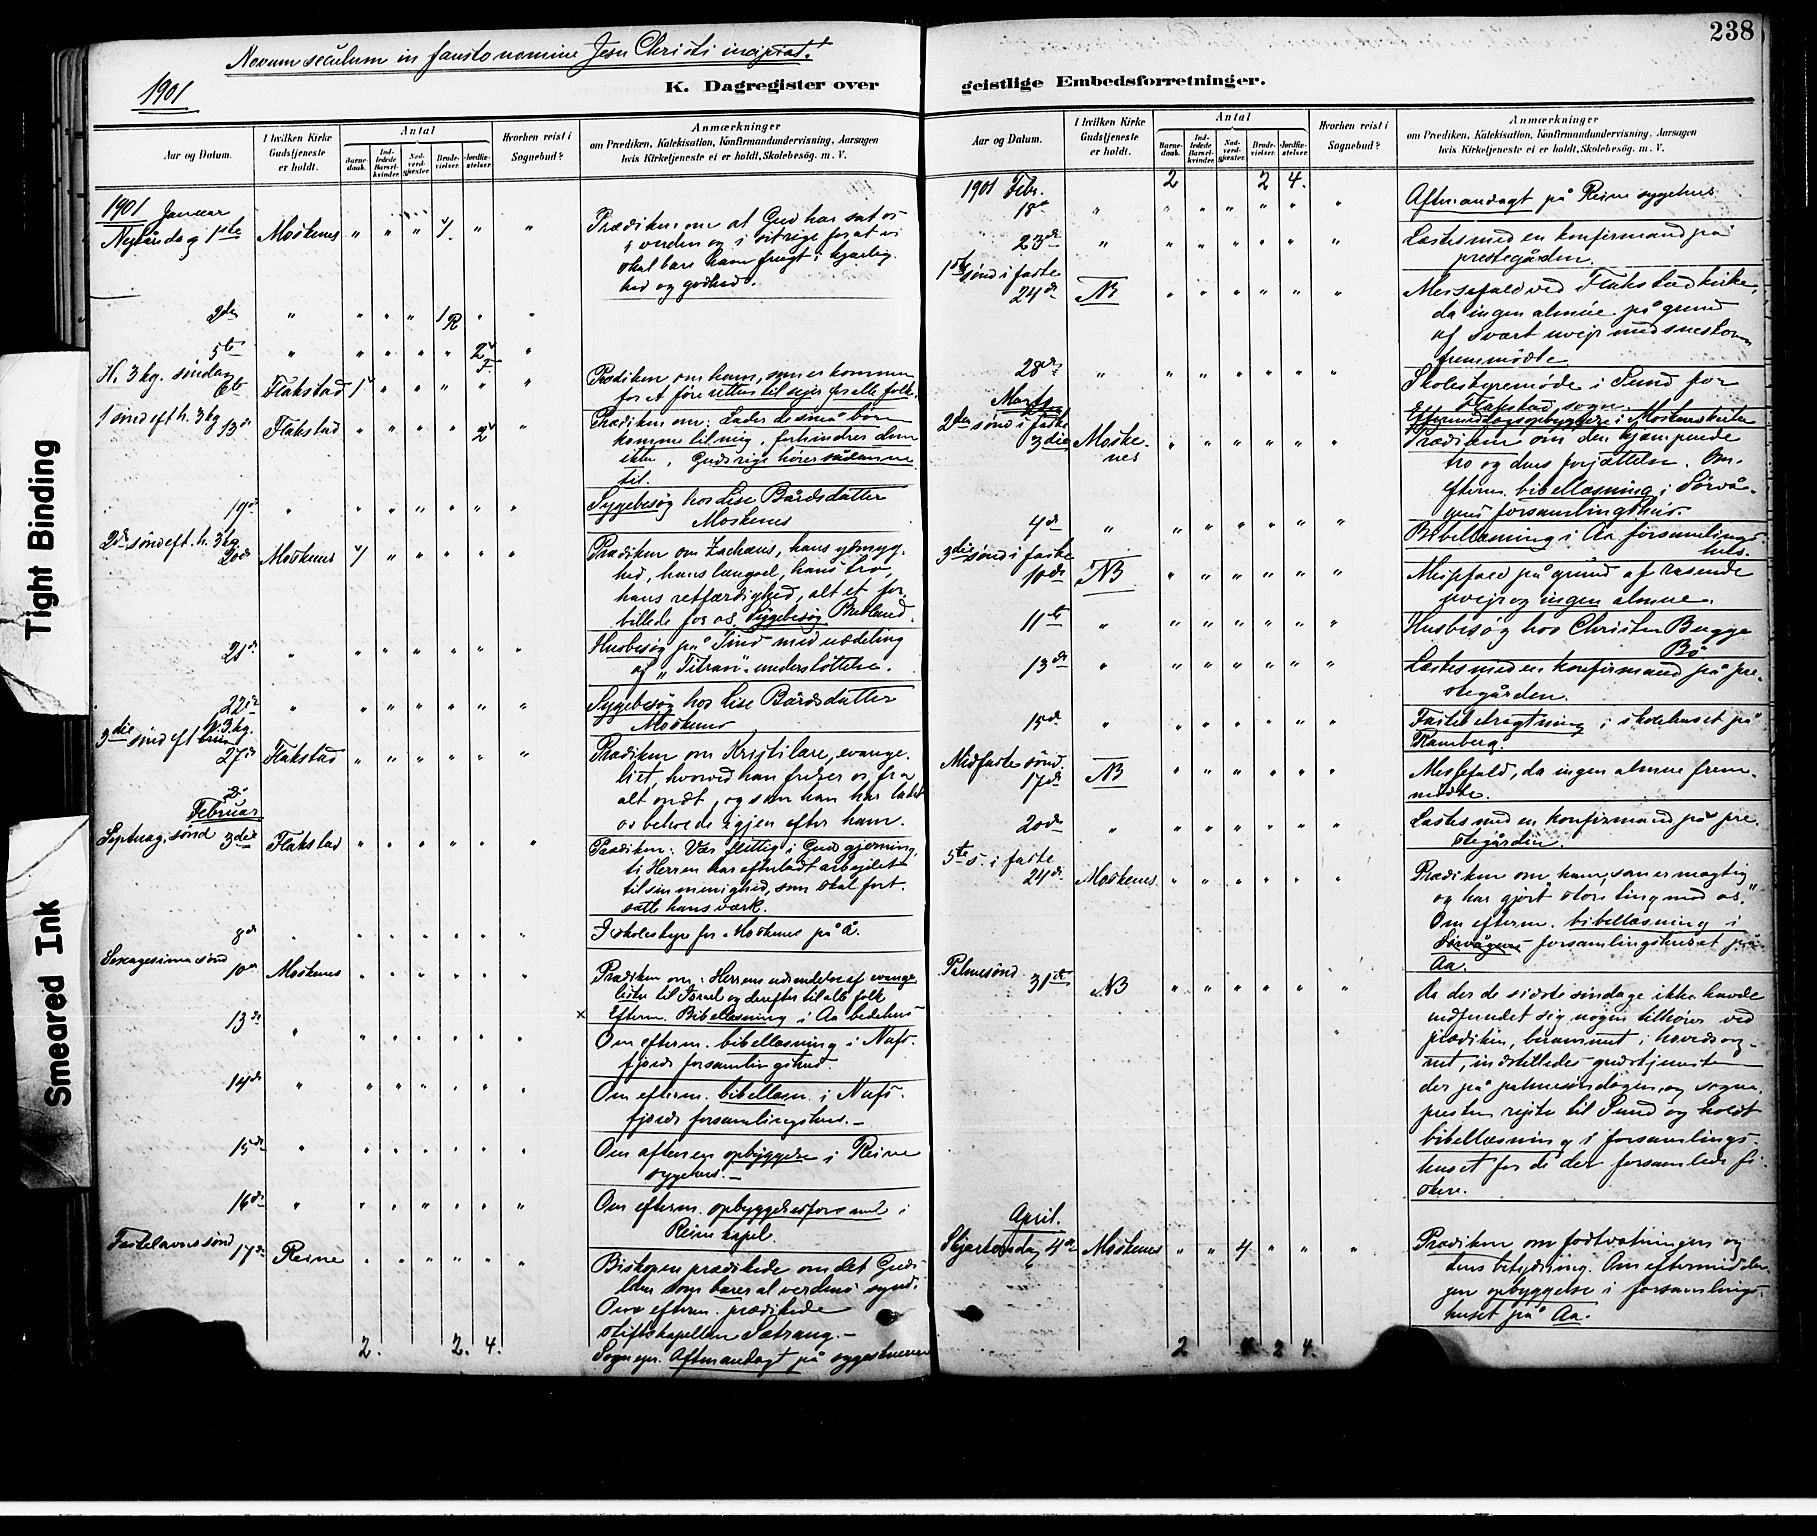 238
Novum seculum in fausto nomine Jesu Christi incipiat!
1901
K. Dagregister over
Aar og Datum.
I hvilken Kirke Gudstjeneste er holdt.
Antal
Barnedaab.
Indledede Barselkvinder.
Nadverdgjæster.
Brudevielser.
Jordfæstelser.
Hvorhen reist i Sognebud?
Anmærkninger
om Prædiken, Katekisation, Konfirmandundervisning, Aarsagen
hvis Kirketjeneste ei er holdt, Skolebesøg. m. V.
1901 Januar
Nyårsdag 1ste Moskenes " " " 1 " " Prædiken om at Gud har sat os
i verden og i sit rige for at vi
skal bære ham frugt i kjærlig-
hed og godhed.
2den " " " " 1 R " "
5te " " " " " 2 "
H. 3 kg. søndag
6te Flakstad 1 " " " " " Prædiken om ham, som er kommen
for at føre retten til sejer for alle folk.
1 sønd eft h. 3 kg
13de Flakstad " " " " 2 " Prædiken om: Lader de små børn
komme til mig, forhindrer dem
ikke, Guds rige hører sådanne
til.
19de " " " " " " " Sygebesøg hos Lise Bårdsdatter
Moskenes
2den sønd eft. h. 3 kg
20de Moskenes 1 " " " " " Prædiken om Zachæus, hans ydmyg-
hed, hans længsel, hans tro,
hans retfærdighed, alt et for-
billede for os. Sygebesøg
21de " " " " " " " Husbesøg på Tind med uddeling
af "Titran"-understøttelse.
22de " " " " " " " Sygebesøg hos Lise Bårdsdatter
Moskenes
3die sønd eft h. 3 kg.
27de Flakstad " " " " " " Prædiken om Kristi lære, evange-
liet, hvorved han frelser os fra
alt ondt, og som han har ladet
os beholde igjen efter ham.
Februar
Septuag. sønd 3die Flakstad " " " " " " Prædiken: Vær flittig i Guds gjerning,
ti Herren har efterladt arbejdet
til sin menighed, som skal fort-
sætte hans værk.
8de " " " " " " " I skolestyre for Moskenes på Å.
Sexagesima sønd
10de Moskenes " " " " " " Prædiken om: Herrens udsendelse af evange-
lister til Israel og derefter til alle folk
× Efterm. Bibellæsning i Aa bedehus
13de " " " " " " Om efterm. bibellæsning i Nufs-
fjords forsamlingshus.
14de " " " " " " " Om efterm. bibellæsn. i Nufs-
fjords forsamlingshus.-
15de " " " " " " " Om aftenen opbyggelse i Reine
sygehus.-
16de " " " " " " " Om efterm. opbyggelsesforsaml i
Reine kapel.
Fastelavnssønd
17de Reine " " " " " " Biskopen prædikede om det Guds
lam som bærer al verdens synd.
Om efterm. prædikede
stiftskapellan Sætrang.-
2. 2. 4. Sognepr. Aftenandagt på
geistlige Embedsforretninger.
Aar og Datum.
I hvilken Kirke Gudstjeneste er holdt.
Antal
Barnedaab.
Indledede Barselkvinder.
Nadverdgjæster.
Brudevielser.
Jordfæstelser.
Hvorhen reist i Sognebud?
Anmærkninger
om Prædiken, Katekisation, Konfirmandundervisning, Aarsagen
hvis Kirketjeneste ei er holdt, Skolebesøg. m. V.
1901 Febr. 2 2 4.
18de " " " " " " " Aftenandagt på Reine sygehus
23de " " " " " " " Læstes med en konfirmand på
prestegården.
1ste sønd i faste
24de NB " " " " " " Messefald ved Flakstad kirke,
da ingen almue på grund
af svært uvejr med snestorm
fremmødte
28de " " " " " " " Skolestyremøde i Sund for
Flakstad sogn.
Marts
2den sønd i faste
3die Moskenes " " " " " " Prædiken om den kjæmpende
tro og dens forjættelse. Om
efterm. bibellæsning i Sørvå-
gens forsamlingshus.
4de " " " " " " " Bibellæsning i Aa forsamlings-
hus.
3die sønd i faste
10de NB " " " " " " Messefald på grund af rasende
uvejr og ingen almue.
11te " " " " " " " Husbesøg hos Christen Bugge
Bø
13de " " " " " " " Læstes med en konfirmand på pre-
stegården.
15de " " " " " " " Fastebetragtning i skolehuset på
Ramberg.
Midfaste sønd.
17de NB " " " " " " Messefald, da ingen almue frem-
mødte.
20de " " " " " " " Læstes med en konfirmand på pre-
stegården.
5te s i faste
24de Moskenes " " " " " " Prædiken om ham, som er mægtig
og har gjort store ting mod os."
Om efterm. bibellæsning i
Sørvågens forsamlingshuset på
Aa.
Palmesønd
31te NB " " " " " " Da der de sidste søndage ikke havde
indfundet sig nogen tilhører ved
prædiken, berammet i hovedsog-
net, indstilledes gudstjenesten
der på palmesøndagen, og sogne-
presten rejste til Sund og holdt
bibellæsning i forsamlings-
huset for de der forsamlede fi-
skere.
April.
Skjærtorsdag 4de Moskenes " " 4 " " " Prædiken om fodtvætningen og
dens betydning. Om eftermidda-
gen opbyggelse i forsamlings-
huset på Aa.
2 4 2 4.
Tight Binding
Smeared Ink